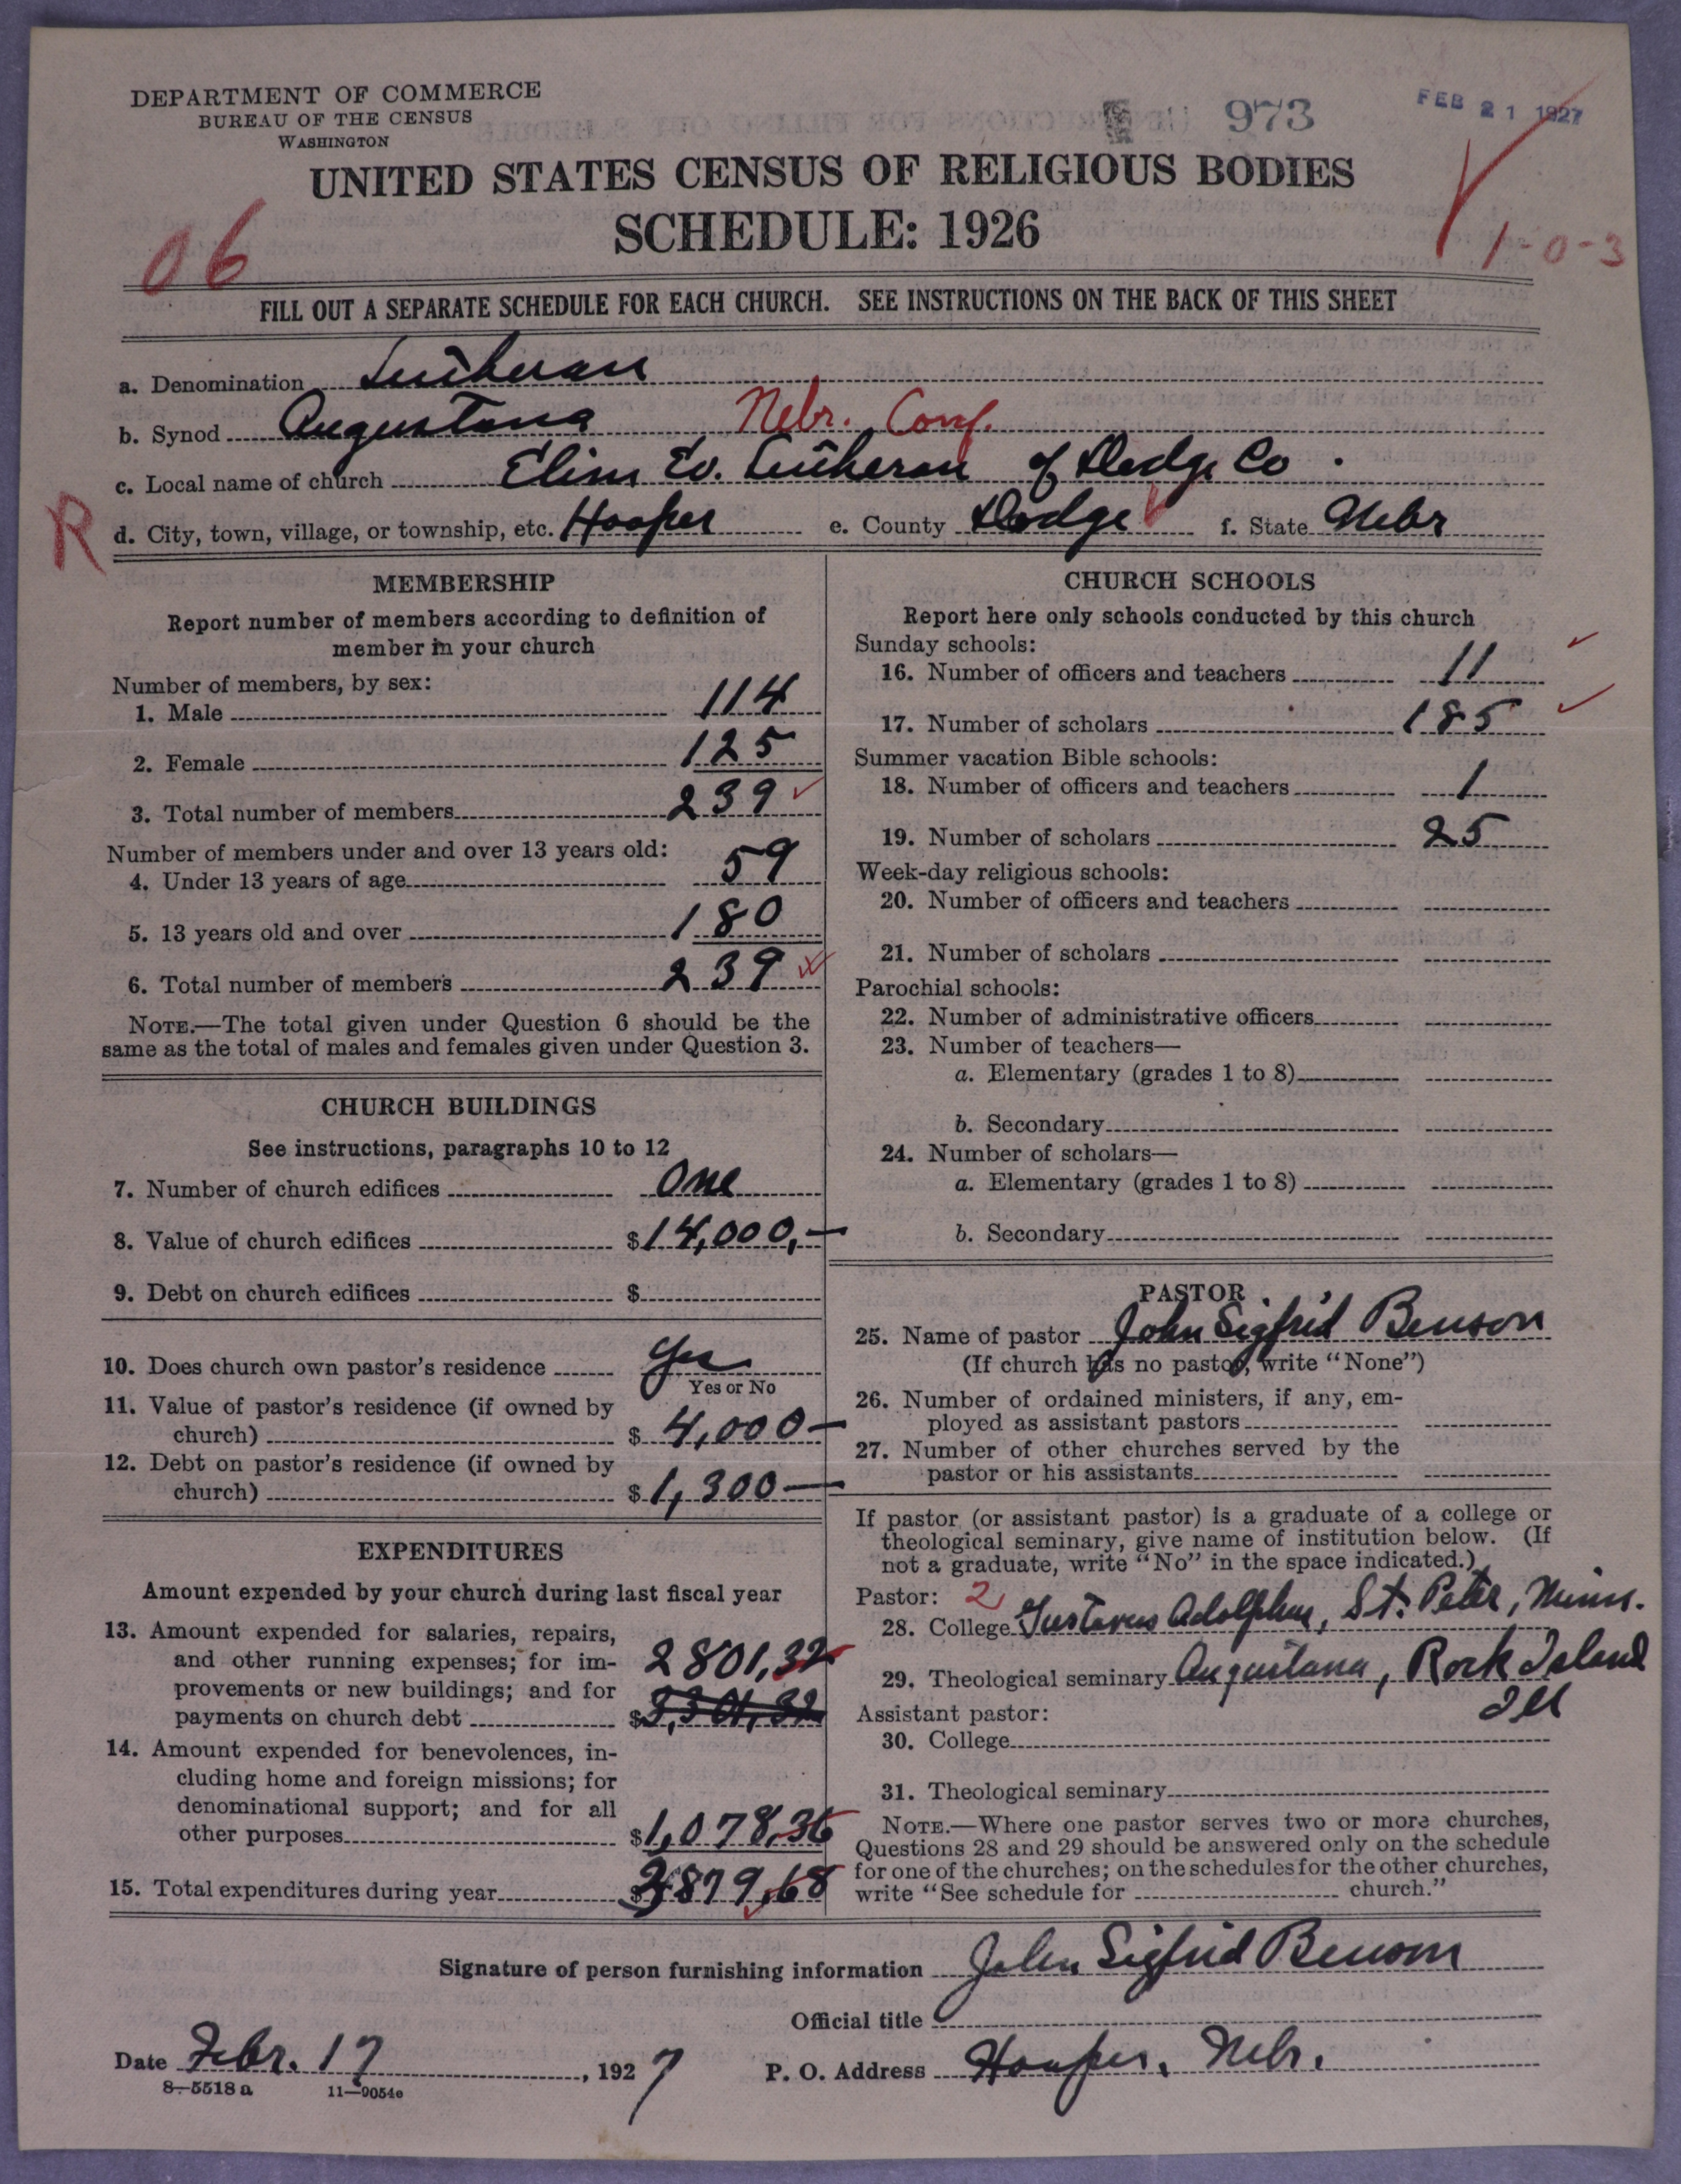 DEPARTMENT OF COMMERCE
BUREAU OF THE CENSUS
WASHINGTON
973
FEB 21 1927
UNITED STATES CENSUS OF RELIGIOUS BODIES
SCHEDULE: 1926
06
1-0-3
FILL OUT A SEPARATE SCHEDULE FOR EACH CHURCH. SEE INSTRUCTIONS ON THE BACK OF THIS SHEET
a. Denomination Lutheran
b. Synod Augustana Nebr. Conf.
c. Local name of church Elim Ev. Lutheran of Dodge Co.
R
d. City, town, village, or township, etc. Hooper e. County Dodge f. State Nebr
MEMBERSHIP
Report number of members according to definition of
member in your church
Number of members, by sex:
1. Male 114
2. Female 125
3. Total number of members 239
Number of members under and over 13 years old:
4. Under 13 years of age 59
5. 13 years old and over 180
6. Total number of members 239
NOTE.—The total given under Question 6 should be the
same as the total of males and females given under Question 3.
CHURCH BUILDINGS
See instructions, paragraphs 10 to 12
7. Number of church edifices One
8. Value of church edifices $14,000,—
9. Debt on church edifices $
10. Does church own pastor's residence Yes
Yes or No
11. Value of pastor's residence (if owned by
church) $ 4,000—
12. Debt on pastor's residence (if owned by
church) $ 1,300—
EXPENDITURES
Amount expended by your church during last fiscal year
13. Amount expended for salaries, repairs,
and other running expenses; for im-
provements or new buildings; and for
payments on church debt $ 2801,32
14. Amount expended for benevolences, in-
cluding home and foreign missions; for
denominational support; and for all
other purposes $1,078,36
15. Total expenditures during year $3,879,68
CHURCH SCHOOLS
Report here only schools conducted by this church
Sunday schools:
16. Number of officers and teachers 11
17. Number of scholars 185
Summer vacation Bible schools:
18. Number of officers and teachers 1
19. Number of scholars 25
Week-day religious schools:
20. Number of officers and teachers
21. Number of scholars
Parochial schools:
22. Number of administrative officers
23. Number of teachers—
a. Elementary (grades 1 to 8)
b. Secondary
24. Number of scholars—
a. Elementary (grades 1 to 8)
b. Secondary
PASTOR
25. Name of pastor John Sigfrid Benson
(If church has no pastor, write "None")
26. Number of ordained ministers, if any, em-
ployed as assistant pastors
27. Number of other churches served by the
pastor or his assistants
If pastor (or assistant pastor) is a graduate of a college or
theological seminary, give name of institution below. (If
not a graduate, write "No" in the space indicated.)
Pastor: 2
28. College Gustavus Adolphus, St. Peter, Minn.
29. Theological seminary Augustana, Rock Island
Ill
Assistant pastor:
30. College
31. Theological seminary
NOTE.—Where one pastor serves two or more churches,
Questions 28 and 29 should be answered only on the schedule
for one of the churches; on the schedules for the other churches,
write "See schedule for church."
Signature of person furnishing information John Sigfrid Benson
Official title
Date Febr. 17, 1927 P. O. Address Hooper, Nebr.
8-5518 a 11-9054c